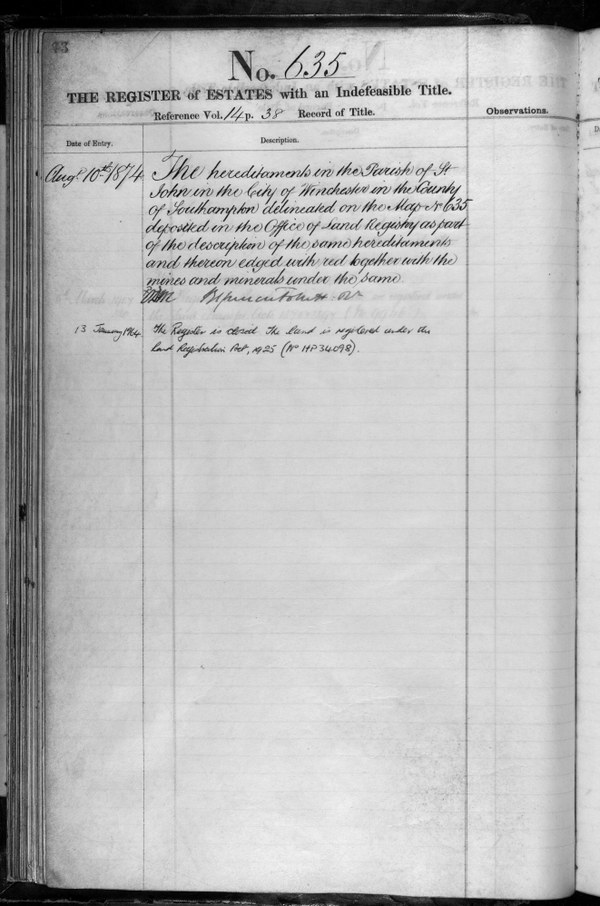 No. 635
THE REGISTER of ESTATES with an Indefeasible Title.
Reference Vol. 14 p. 38 Record of Title.
Observations.
Date of Entry.
Description.
Augt. 10th 1874
The hereditaments in the Parish of St
John in the City of Winchester in the County
of Southampton delineated on the Map No 635
deposited in the Office of Land Registry as part
of the description of the same hereditaments
and thereon edged with red together with the
mines and minerals under the same
13 January 1964. The Register is closed. The land is registered under the
Land Registration Act, 1925 (No HP34098).